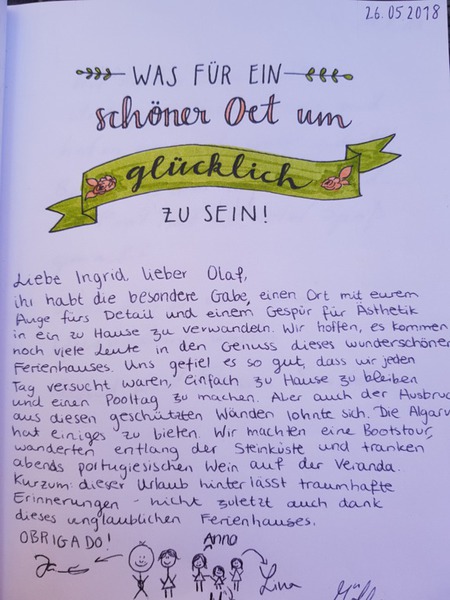 26.05.2018
WAS FÜR EIN
schöner Ort um
glücklich
ZU SEIN!
Liebe Ingrid, lieber Olaf,
ihr habt die besondere Gabe, einen Ort mit eurem
Auge fürs Detail und einem Gespür für Ästhetik
in ein zu Hause zu verwandeln. Wir hoffen, es kommen
noch viele Leute in den Genuss dieses wunderschönen
Ferienhauses. Uns gefiel es so gut, dass wir jeden
Tag versucht waren, einfach zu Hause zu bleiben
und einen Pooltag zu machen. Aber auch der Ausbruch
aus diesen geschützten Wänden lohnte sich. Die Algarve
hat einiges zu bieten. Wir machten eine Bootstour,
wanderten entlang der Steinküste und tranken
abends portugiesischen Wein auf der Veranda.
Kurzum: dieser Urlaub hinterlässt traumhafte
Erinnerungen - nicht zuletzt auch dank
dieses unglaublichen Ferienhauses.
OBRIGADO!
Anno
Lina